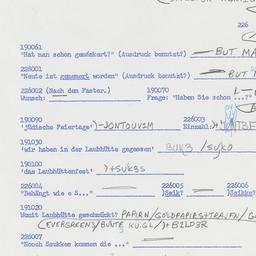 226
190061
"Hat man schon gemöskert?" (Ausdruck benutzt?) —BUT MA
226001
"Heute ist gemoert worden" (Ausdruck benutzt?)
226002 (Nach dem Fasten.) 190070
Wunsch: Frage: "Haben Sie schon ...?"
190090 226003
'jüdische Feiertage' )-JONTOUVIM Einzahl:
191030
'wir haben in der Laubhütte gegessen' sukə /suko
190100
'das Laubhüttenfest' )+sukəs
226004 226005 226006
"Behängt wie e S..." )Seik? )Seikke?
191020
Womit Laubhütte geschmückt? PAPIRN/GOLDPAPIRSTRAJFN/
(EVERGREENS/BUNTE KUGL/)+BILDƏR
226007
"Noach Sukkes kommen die ..."